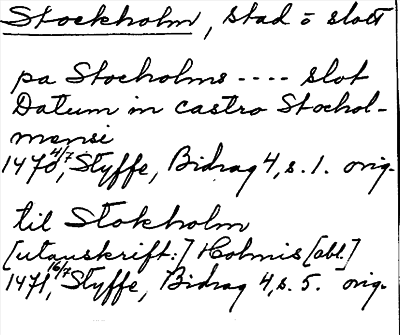 Stockholm, stad o slott
pa Stocholms ---- slot
Datum in castro Stochol-
mensi
1470 4/7, Styffe, Bidrag 4, s. 1. orig.
til Stokholm
[utanskrift:] Holmis [abl.]
1471 16/7, Styffe, Bidrag 4, s. 5. orig.